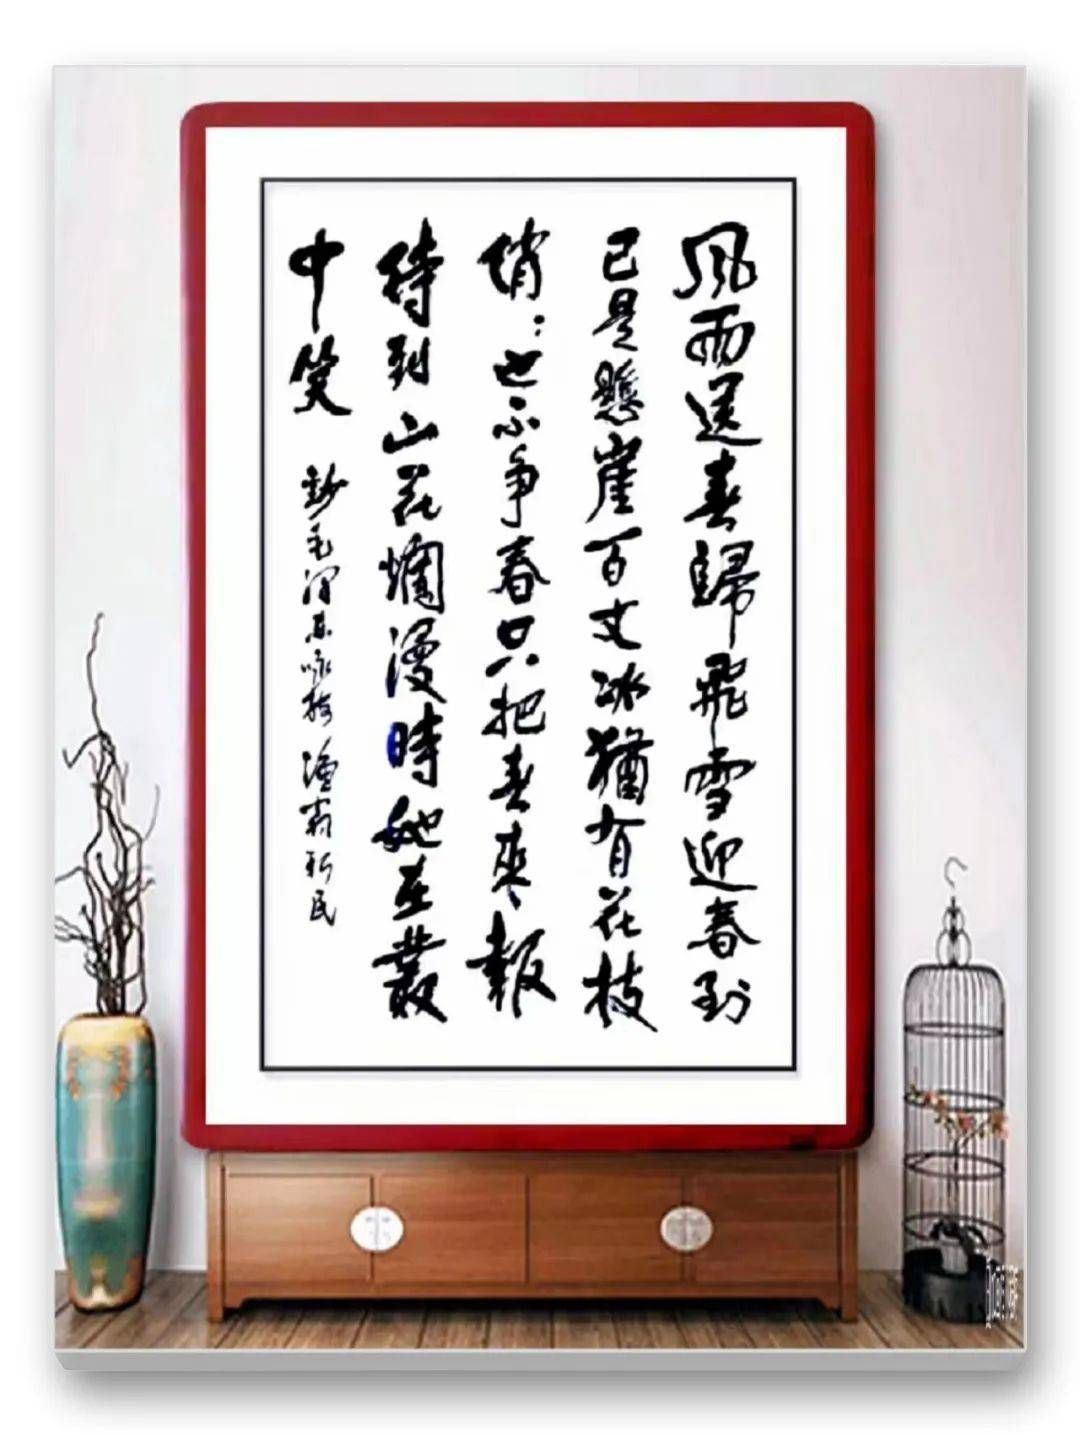 風雨送春歸飛雪迎春到
已是懸崖百丈冰猶有花枝
俏：也不争春只把春來報
待到山花爛漫時她在叢
中笑 鈔毛泽东咏梅 漁翁新民